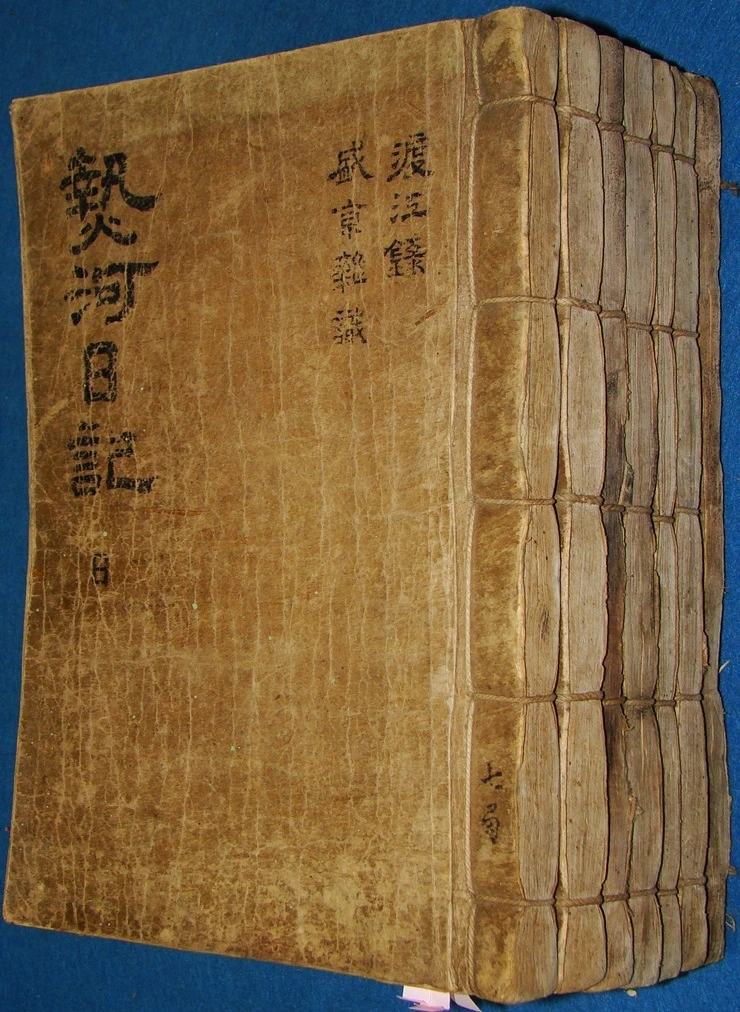 渡江錄
盛京雜識
熱河日記 日